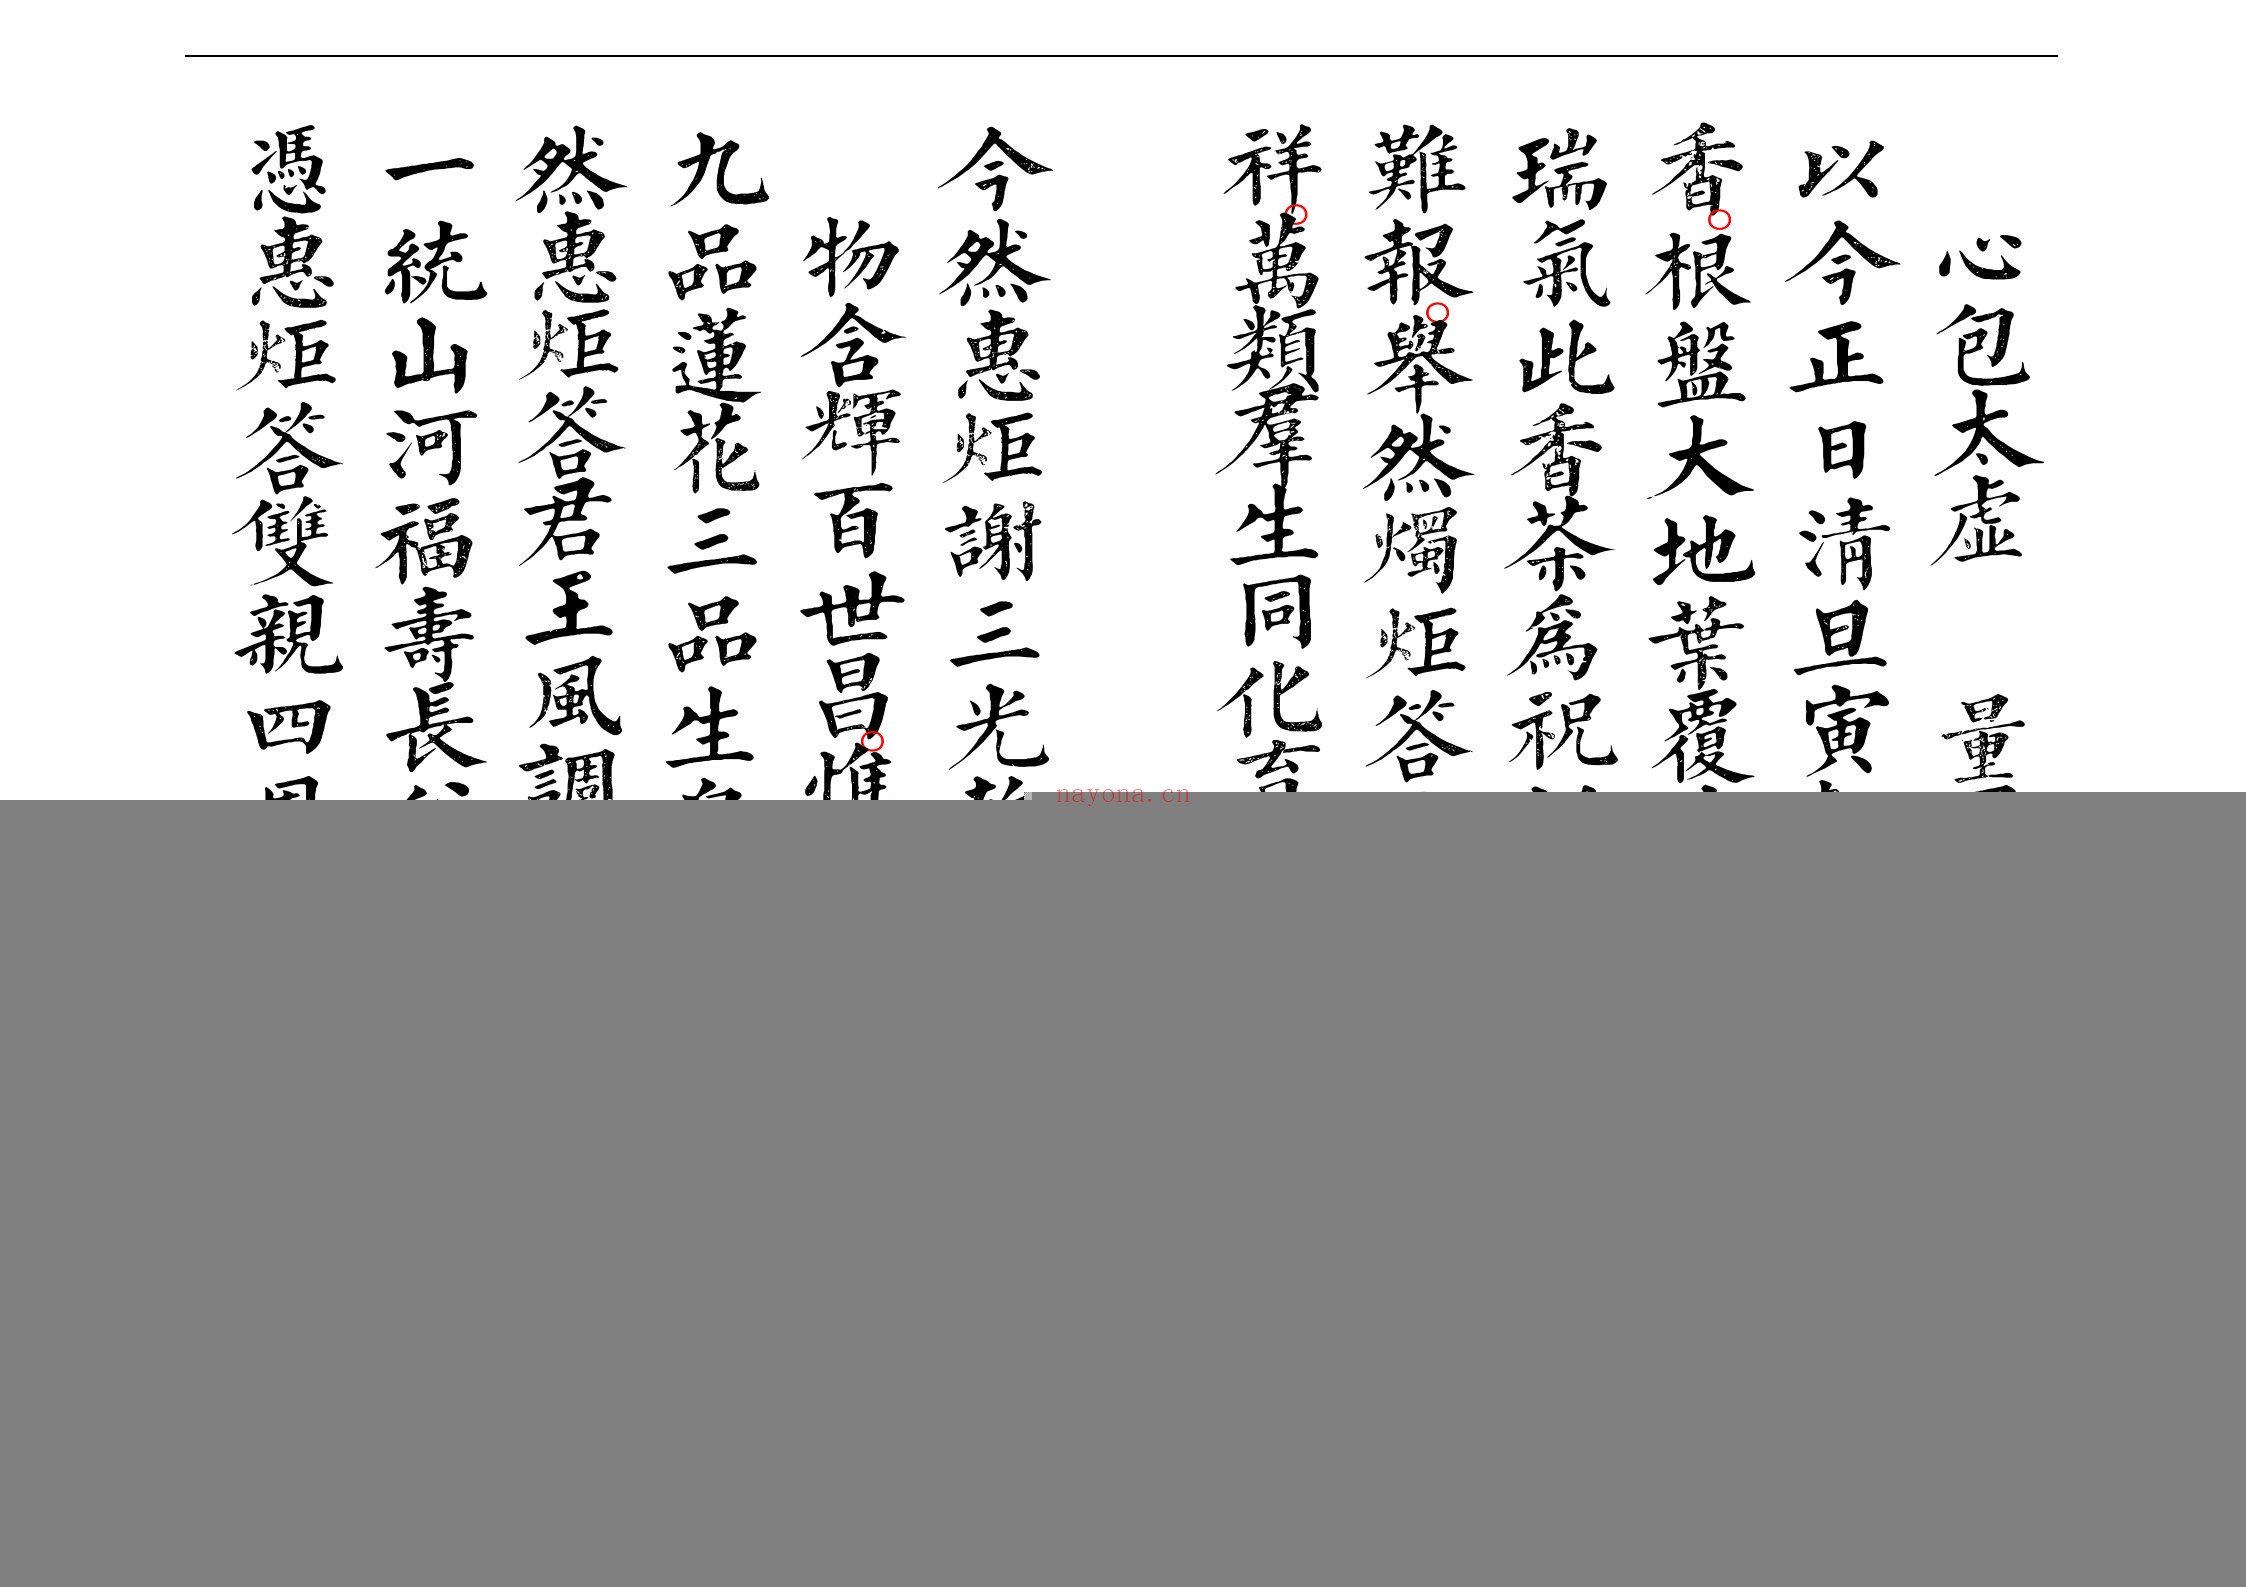 心包太虛　量
以今正日清旦寅
香○根盤大地葉覆
瑞氣此香茶爲祝
難報○舉然燭炬答
祥○萬類羣生同化育
今然惠炬謝三光
物含輝百世昌○惟
九品蓮花三品生
然惠炬答君王風調
一統山河福壽長
憑惠炬答雙親四
nayona.cn